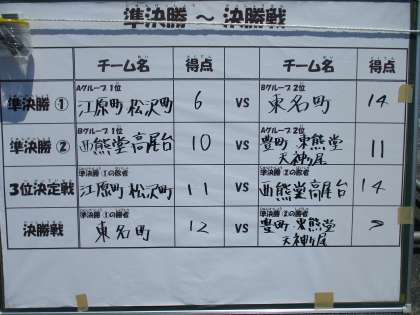 準決勝 ～ 決勝戦
チーム名 得点 チーム名 得点
準決勝 ① Aグループ 1位 江原町 松沢町 6 VS Bグループ 2位 東名町 14
準決勝 ② Bグループ 1位 西熊堂 高尾台 10 VS Aグループ 2位 豊町 東熊堂 天神ヶ尾 11
3位決定戦 準決勝 ①の敗者 江原町 松沢町 11 VS 準決勝 ②の敗者 西熊堂 高尾台 14
決勝戦 準決勝 ①の勝者 東名町 12 VS 準決勝 ②の勝者 豊町 東熊堂 天神ヶ尾